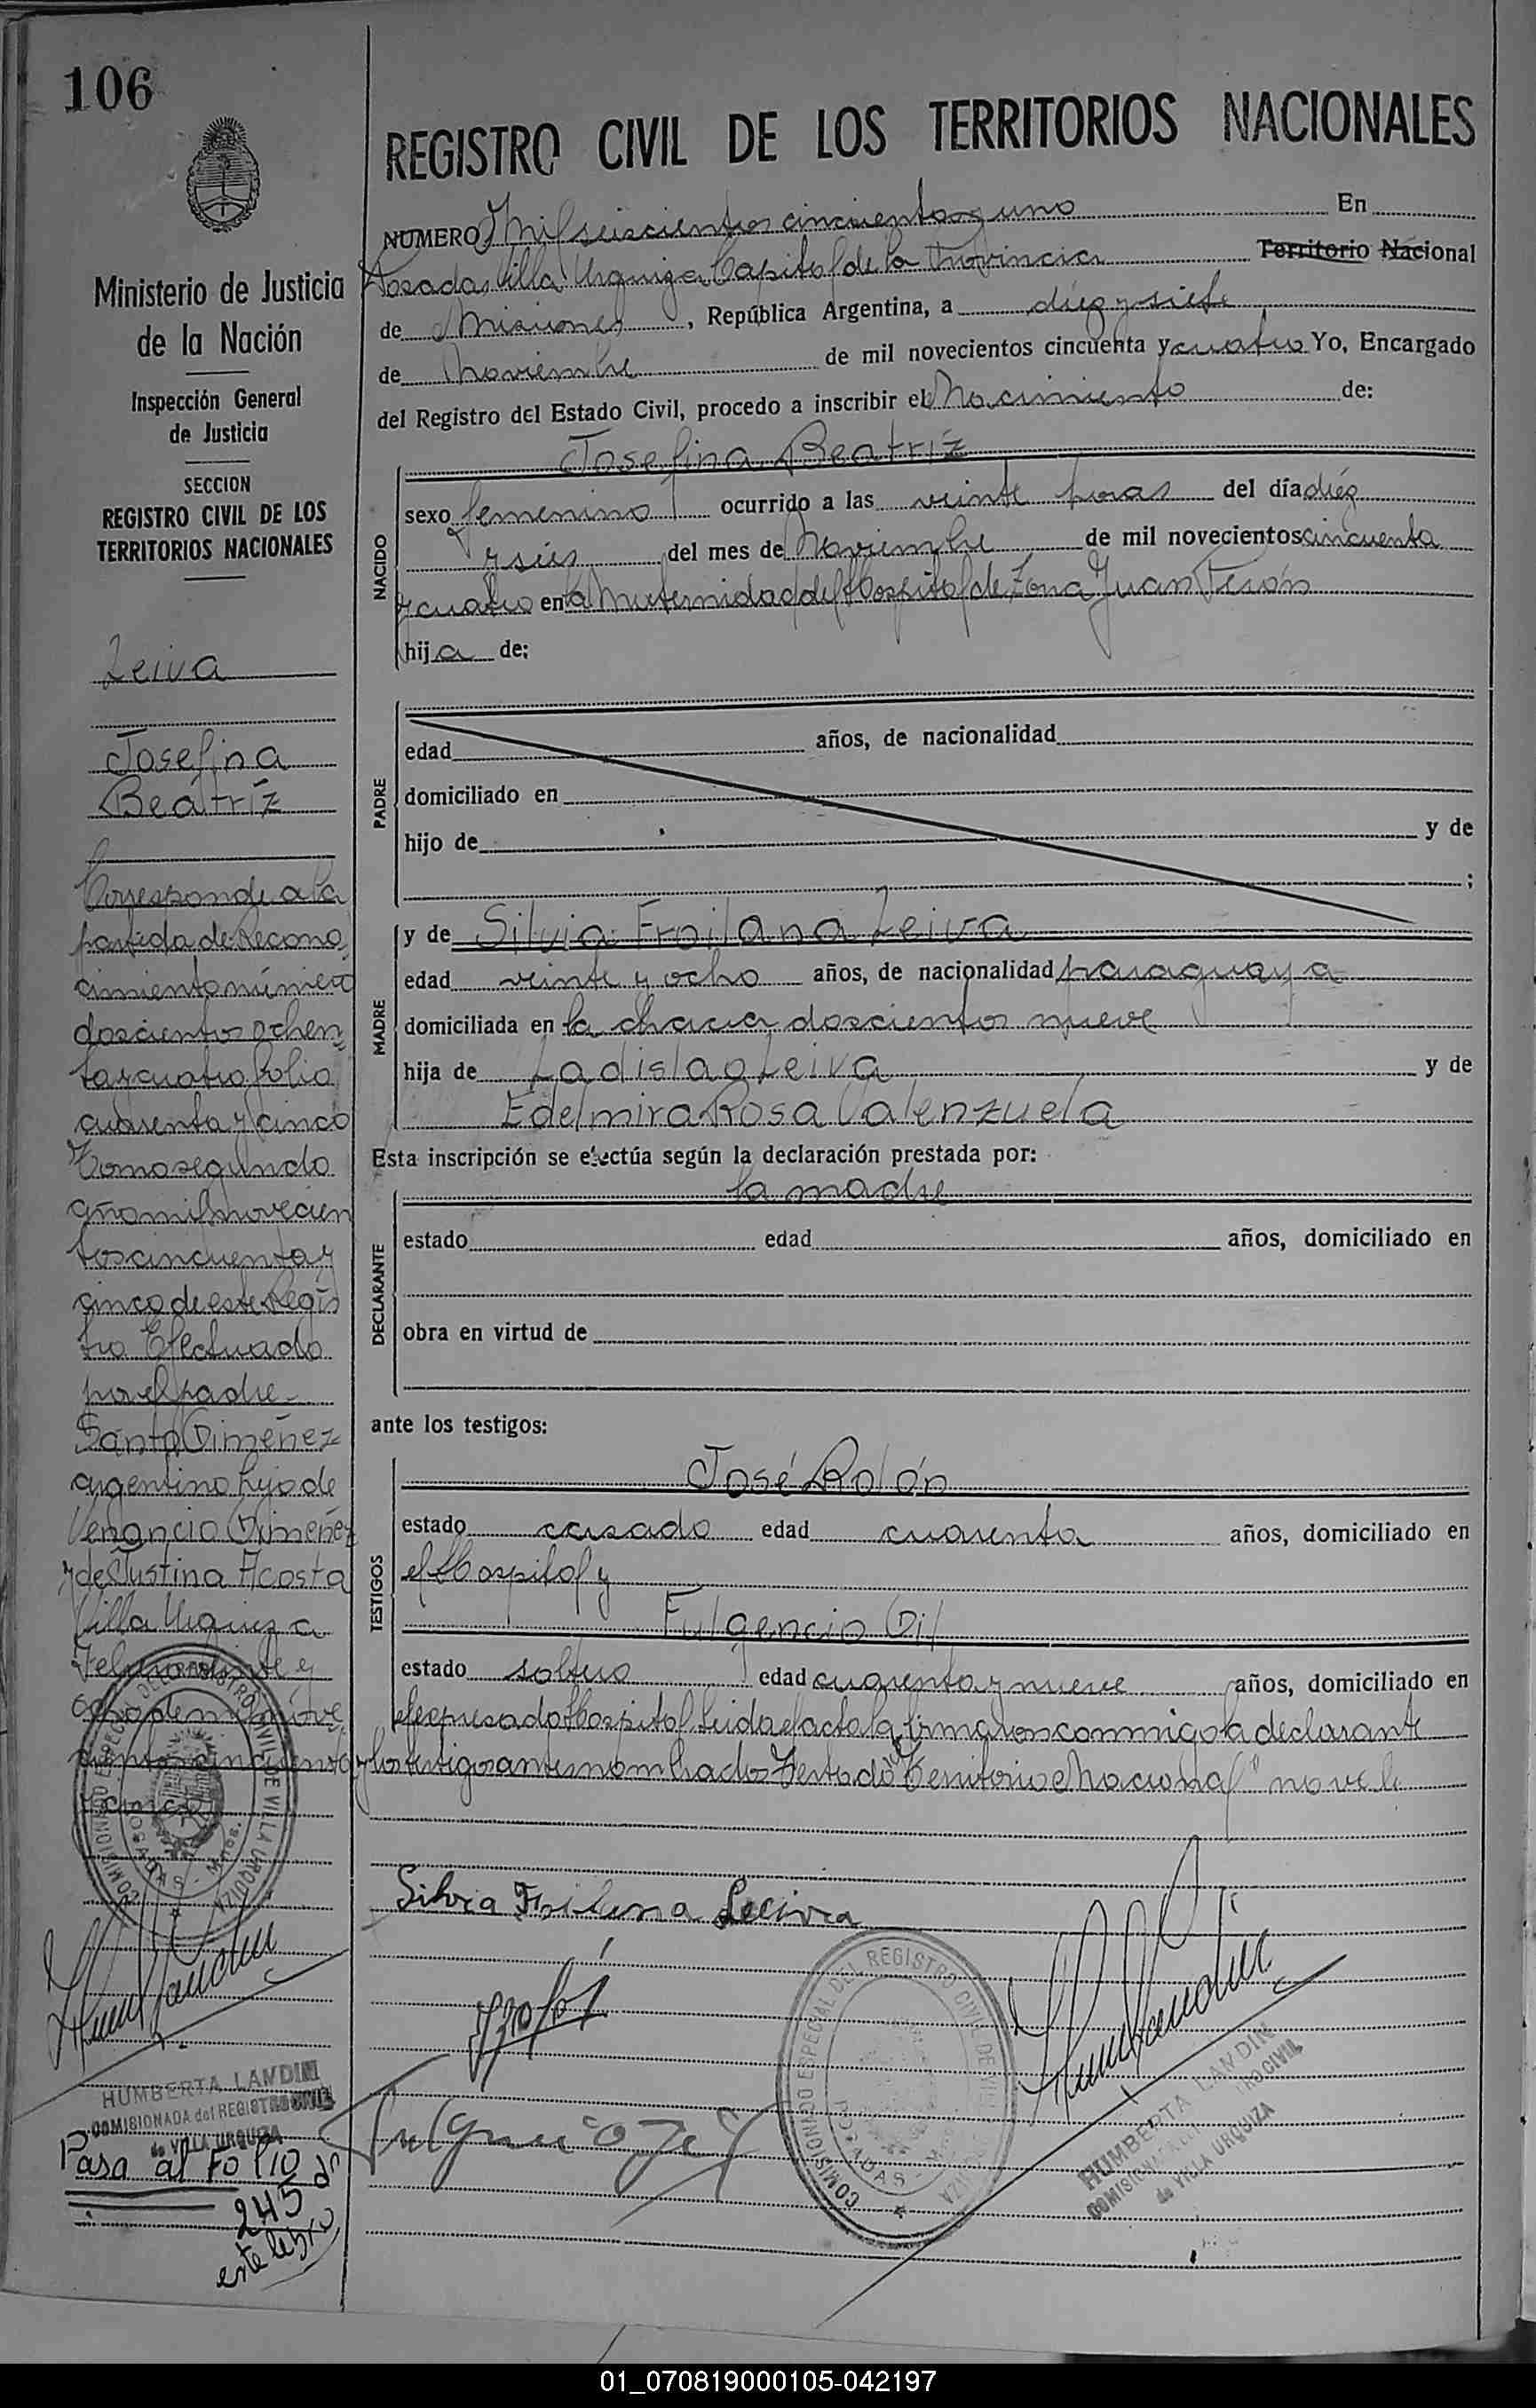 106
Ministerio de Justicia
de la Nación
Inspección General
de Justicia
SECCION
REGISTRO CIVIL DE LOS
TERRITORIOS NACIONALES
Leiva
Josefina
Beatríz
Corresponde a la
partida de Recono
cimiento número
doscientos ochen
ta y cuatro folio
cuarenta y cinco
Tomo segundo
año mil novecien
tos cincuenta y
cinco de este Regis
tro Efectuado
por el padre
Santo Giménez
argentino hijo de
Venancio Giménez
y de Justina Acosta
Villa Urquiza
Febrero veinte y
ocho de mil nove
cientos cincuenta
y cinco
COMISIONADO ESPECIAL DEL REGISTRO CIVIL DE VILLA URQUIZA
POSADAS - Mnes.
HUMBERTA LANDINI
COMISIONADA del REGISTRO CIVIL
de VILLA URQUIZA
Pasa al Folio
245 de
este libro
REGISTRO CIVIL DE LOS TERRITORIOS NACIONALES
NUMERO Mil seiscientos cincuenta y uno En
Posadas Villa Urquiza Capital de la Provincia Territorio Nacional
de Misiones, República Argentina, a diez y siete
de Noviembre de mil novecientos cincuenta y cuatro Yo, Encargado
del Registro del Estado Civil, procedo a inscribir el Nacimiento de:
Josefina Beatríz
NACIDO
sexo femenino ocurrido a las veinte horas del día diéz
y seis del mes de Noviembre de mil novecientos cincuenta
y cuatro en la Maternidad del Hospital de Zona Juan Perón
hija de:
PADRE
edad años, de nacionalidad
domiciliado en
hijo de y de
;
MADRE
y de Silvia Froilana Leiva
edad veinte y ocho años, de nacionalidad paraguaya
domiciliada en la chacra doscientos nueve
hija de Ladislao Leiva y de
Edelmira Rosa Valenzuela
Esta inscripción se efectúa según la declaración prestada por:
la madre
DECLARANTE
estado edad años, domiciliado en
obra en virtud de
ante los testigos:
José Rolón
TESTIGOS
estado casado edad cuarenta años, domiciliado en
el Hospital y
Fulgencio Gil
estado soltero edad cuarenta y nueve años, domiciliado en
el expresado Hospital Leida el acta la firmaron conmigo la declarante
y los testigos antes nombrados Testado "Territorio Nacional" no vale
Silvia Froilana Leeivra
COMISIONADO ESPECIAL DEL REGISTRO CIVIL DE VILLA URQUIZA
POSADAS - Mnes.
HUMBERTA LANDINI
COMISIONADA del REGISTRO CIVIL
de VILLA URQUIZA
01_070819000105-042197